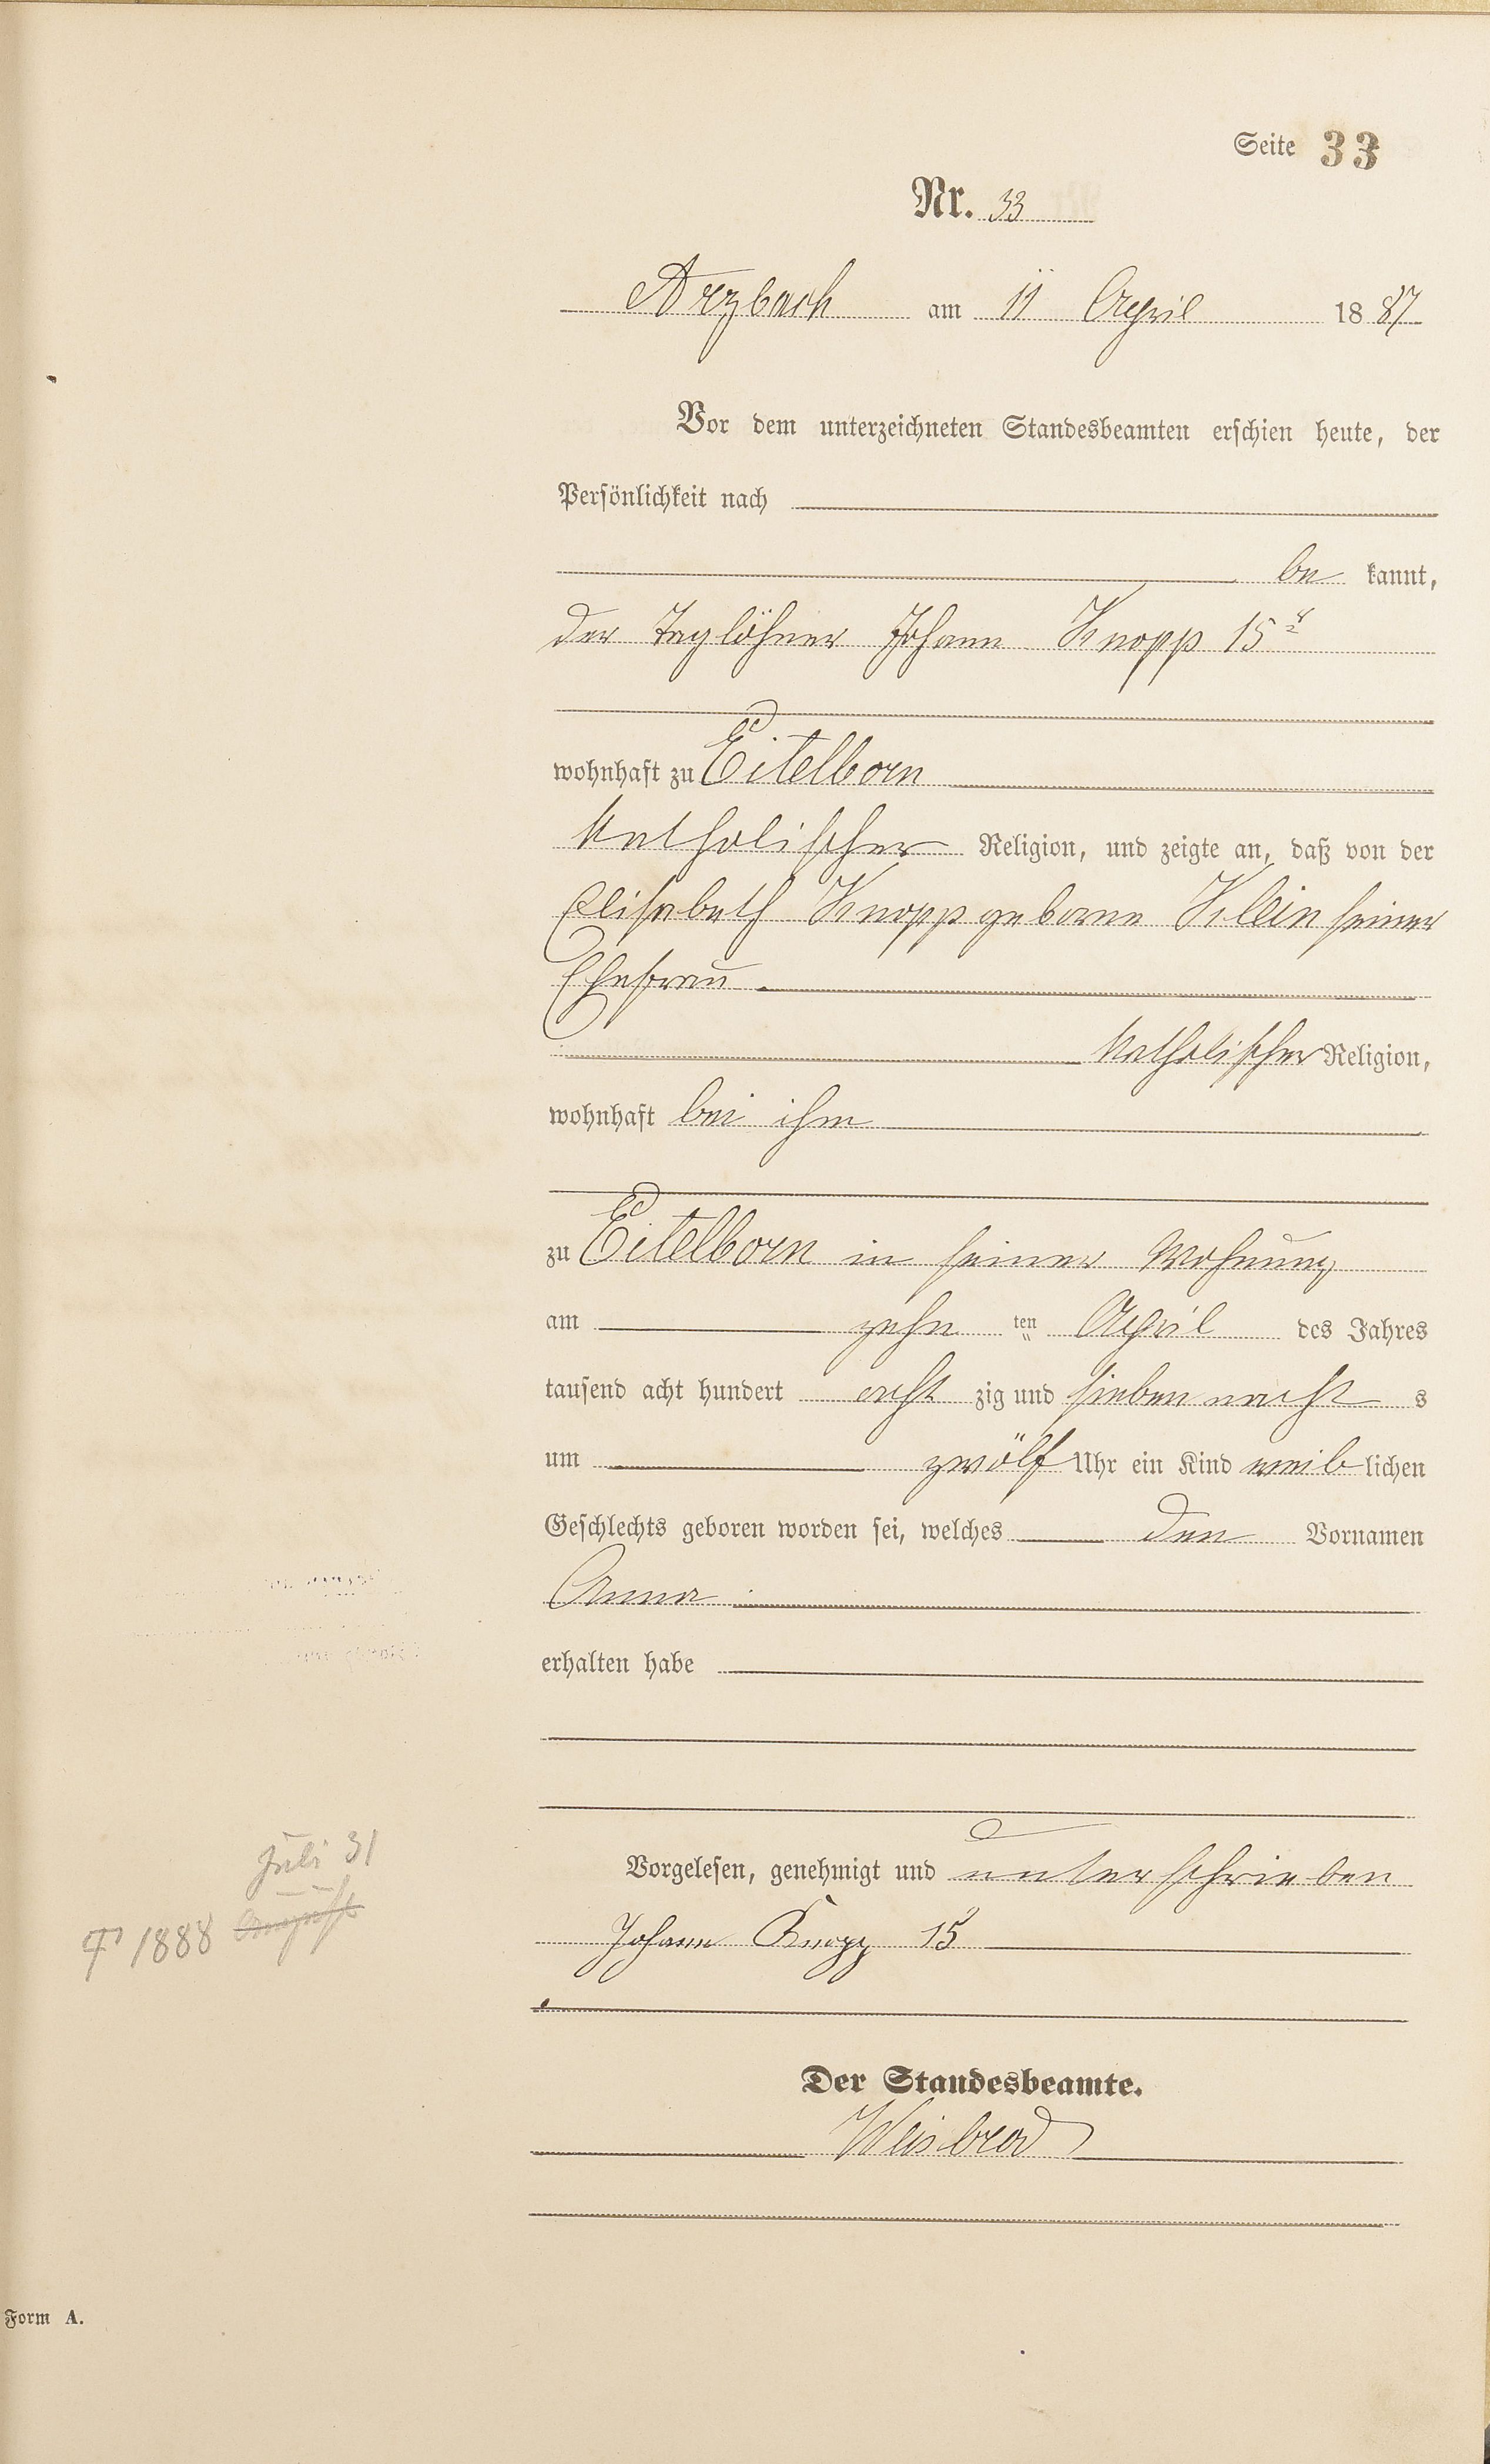 Seite 33
Nr. 33
Arzbach am 11 April 1887
Vor dem unterzeichneten Standesbeamten erschien heute, der
Persönlichkeit nach
be kannt,
der Taglöhner Johann Knopp 15r
wohnhaft zu Eitelborn
katholischer Religion, und zeigte an, daß von der
Elisabeth Knopp geborne Klein seiner
Ehefrau
katholischer Religion,
wohnhaft bei ihm
zu Eitelborn in seiner Wohnung
am zehn ten April des Jahres
tausend acht hundert acht zig und sieben nacht s
um zwölf Uhr ein Kind weib lichen
Geschlechts geboren worden sei, welches den Vornamen
Anna
erhalten habe
Vorgelesen, genehmigt und unterschrieben
Johann Knopp 15
Juli 31
† 1888 August
Der Standesbeamte.
Weisbrod
Form A.